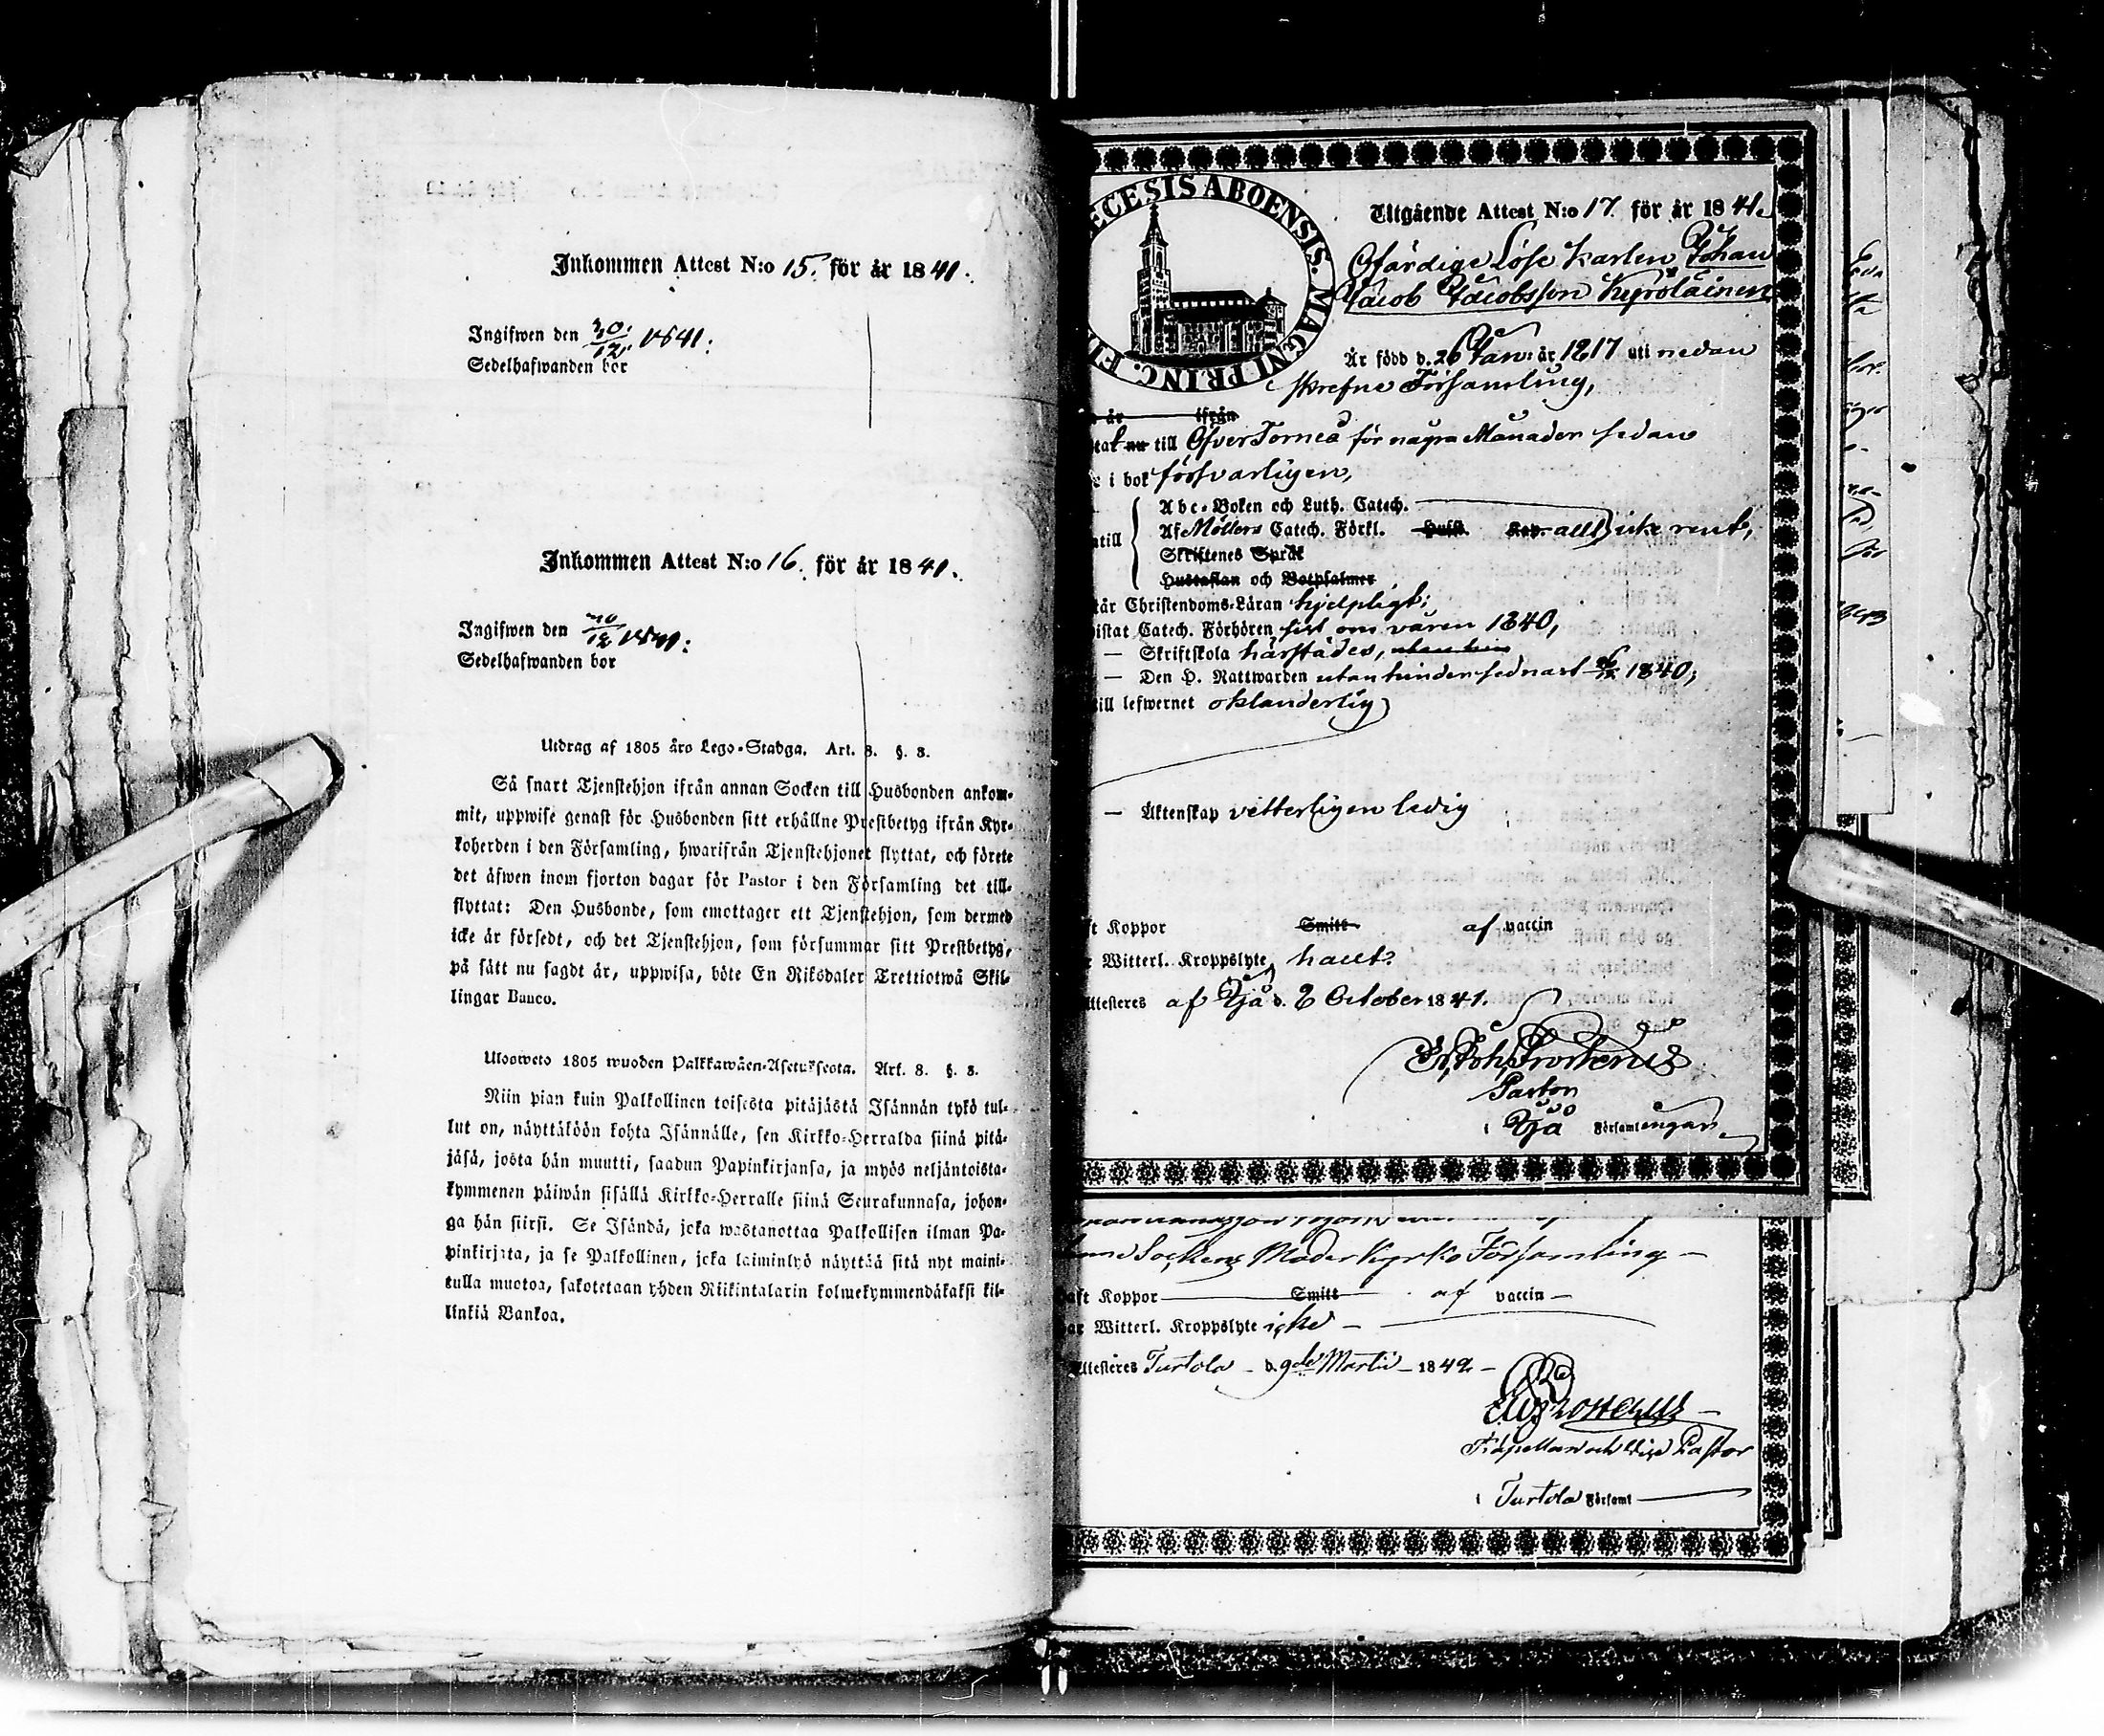 Inkommen Attest N:o 15. för år 1841.
Ingifwen den 30/12 1841.
Sedelhafwanden bor
Inkommen Attest N:o 16. för år 1841.
Ingifwen den 30/12 1841.
Sedelhafwanden bor
Utdrag af 1805 åro Lego-Stadga. Art. 8. §. 3.
Så snart Tjenstehjon ifrån annan Socken till Husbonden ankom-
mit, uppwise genast för Husbonden sitt erhållne Prestbetyg ifrån Kyr-
koherden i den Församling, hwarifrån Tjenstehjonet flyttat, och förete
det äfwen inom fjorton dagar för Pastor i den Församling det till-
flyttat: Den Husbonde, som emottager ett Tjenstehjon, som dermed
icke är försedt, och det Tjenstehjon, som försummar sitt Prestbetyg,
på sätt nu sagdt är, uppwisa, böte En Riksdaler Trettiotwå Skil-
lingar Banco.
Ulosweto 1805 wuoden Palkkawäen-Asetuksesta. Art. 8. §. 3.
Niin pian kuin Palkollinen toisesta pitäjästä Isännän tykö tul-
lut on, näyttäköön kohta Isännälle, sen Kirkko-Herralda siinä pitä-
jäsä, josta hän muutti, saadun Papinkirjansa, ja myös neljäntoista-
kymmenen päiwän sisällä Kirkko-Herralle siinä Seurakunnasa, johon-
ga hän siirsi. Se Isändä, joka wastanottaa Palkollisen ilman Pa-
pinkirjata, ja se Palkollinen, joka laiminlyö näyttää sitä nyt maini-
tulla muotoa, sakotetaan yhden Riikintalarin kolmekymmendäkaksi kil-
linkiä Bankoa.
ECESIS ABOENSIS. MAGNI PRINC. FI
Utgående Attest N:o 17. för år 1841.
Ofärdige Löse karlen Johan
Jacob Jacobsson Kyrölainen
Är född d. 26 Jan: år 1817 uti nedan
skrefne Församling,
år ifrån
nu till ÖfverTorneå för några Månader sedan
i bok försvarligen,
Abc-Boken och Luth. Catech.
Af Möllers Catech. Förkl. Husst. allt icke rent,
Skriftenes Språk
Hustaflan och Botpsalmer
Christendoms-Läran hjelpligt;
istat Catech. Förhören sist om våren 1840,
— Skriftskola härstädes,
— Den H. Nattwarden utan hinder sednast 1840;
till lefwernet oklanderlig
— Äktenskap vetterligen ledig
ft Koppor Smitt af vaccin
Witterl. Kroppslyte halt.
ttesteres af Ijå d. 2 October 1841.
Pastor
i Ijå Församlingar.
Sockens Moder Kyrko Församling —
aft Koppor Smitt af vaccin —
ar Witterl. Kroppslyte icke —
ttesteres Turtola — d. 9de Martii — 1842 —
Kapellan och Vice Pastor
i Turtola Församl